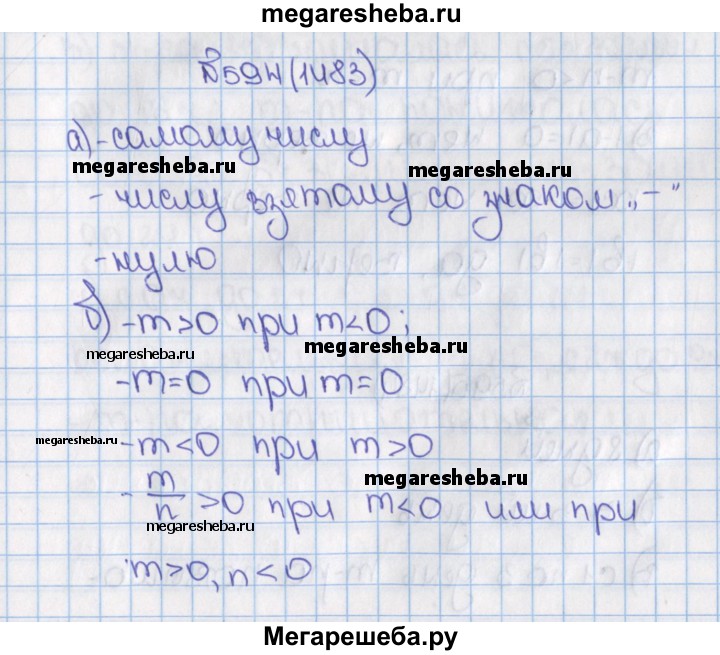 megaresheba.ru
№594(1483)
а)-самому числу
megaresheba.ru
megaresheba.ru
-числу взятому со знаком „-"
-нулю
б) -m>0 при m<0;
megaresheba.ru
megaresheba.ru
-m=0 при m=0
megaresheba.ru
-m<0 при m>0
megaresheba.ru
- m/n >0 при m<0 или при
megaresheba.ru
m>0, n<0
Мегарешеба.ру